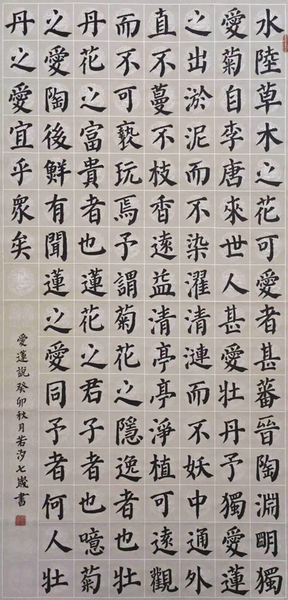 水陸草木之花可愛者甚蕃晉陶淵明獨
愛菊自李唐來世人甚愛牡丹予獨愛蓮
之出淤泥而不染濯清漣而不妖中通外
直不蔓不枝香遠益清亭亭淨植可遠觀
而不可褻玩焉予謂菊花之隱逸者也牡
丹花之富貴者也蓮花之君子者也噫菊
之愛陶後鮮有聞蓮之愛同予者何人牡
丹之愛宜乎衆矣
愛蓮說癸卯秋月若汐七歲書